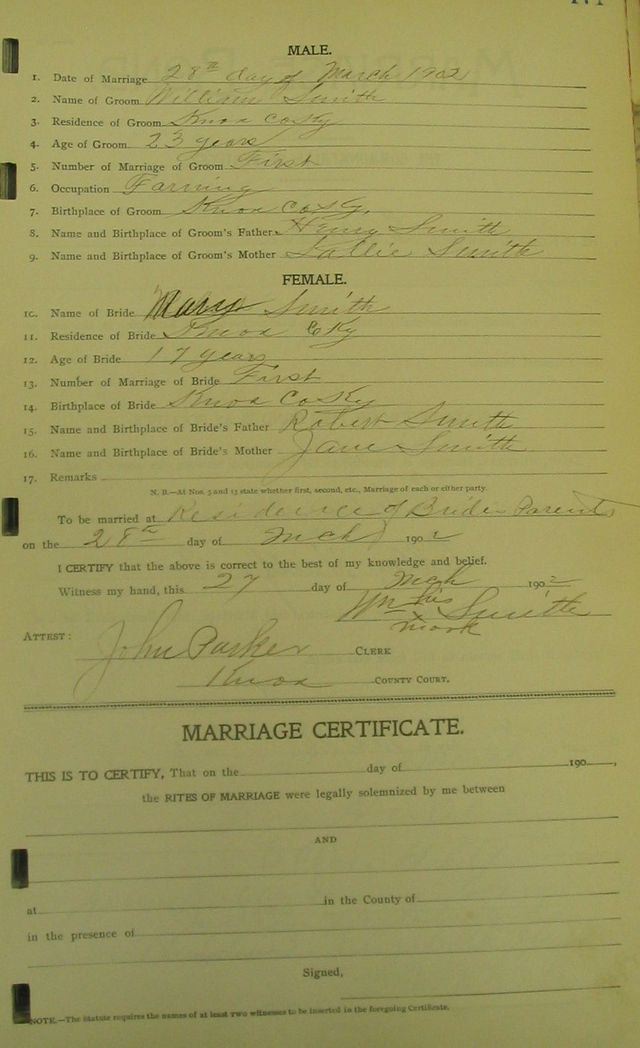 MALE.
1. Date of Marriage 28th day of March 1902
2. Name of Groom William Smith
3. Residence of Groom Knox Co Ky
4. Age of Groom 23 years
5. Number of Marriage of Groom First
6. Occupation Farming
7. Birthplace of Groom Knox Co
8. Name and Birthplace of Groom's Father Henry Smith
9. Name and Birthplace of Groom's Mother Sallie Smith
FEMALE.
10. Name of Bride Mary Smith
11. Residence of Bride Knox Ky
12. Age of Bride 17 years
13. Number of Marriage of Bride First
14. Birthplace of Bride Knox Co Ky
15. Name and Birthplace of Bride's Father Robert Smith
16. Name and Birthplace of Bride's Mother Jane Smith
17. Remarks
N. B.—At Nos. 5 and 13 state whether first, second, etc., Marriage of each or either party.
To be married at Residence of Brides Parents
on the 28th day of Mch 1902
I CERTIFY that the above is correct to the best of my knowledge and belief.
Witness my hand, this 27 day of Mch 1902
Wm his x mark Smith
ATTEST: John Parker CLERK
Knox COUNTY COURT.
MARRIAGE CERTIFICATE.
THIS IS TO CERTIFY, That on the day of 190 ,
the RITES OF MARRIAGE were legally solemnized by me between
AND
at in the County of
in the presence of
Signed,
NOTE.—The Statute requires the names of at least two witnesses to be inserted in the foregoing Certificate.